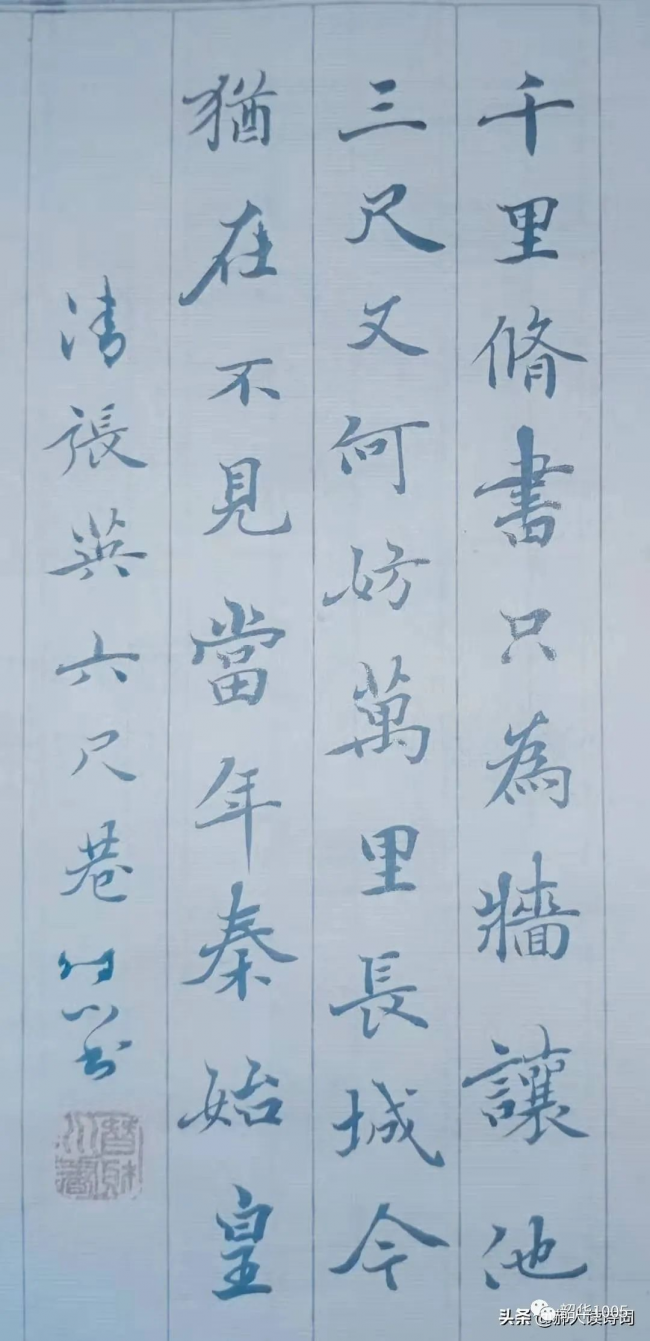 千里脩書只為牆讓他
三尺又何妨萬里長城今
猶在不見當年秦始皇
清張英六尺巷
韶华1005
头条@郝人读诗词